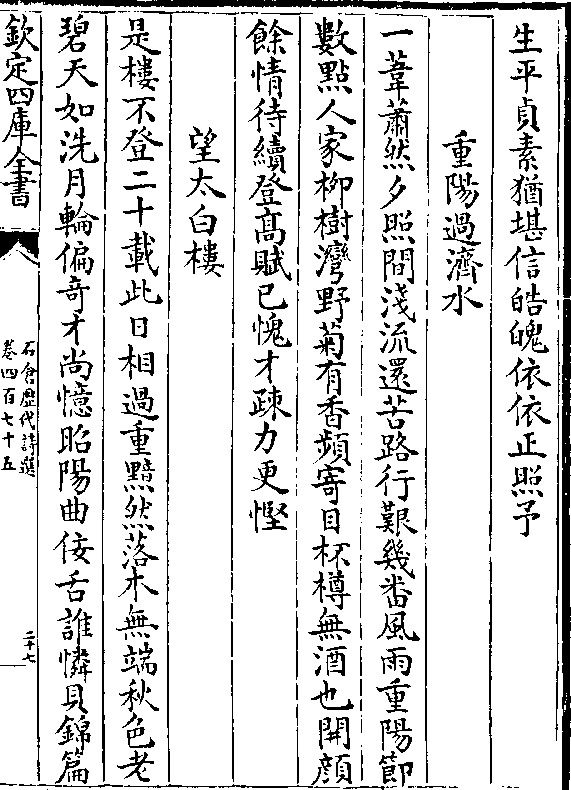 生平貞素猶堪信皓魄依依正照予
重陽過濟水
一葦蕭然夕照間淺流還苦路行艱幾畨風雨重陽節
數點人家柳樹灣野菊有香頻寄目杯樽無酒也開顔
餘情待續登髙賦已愧才疎力更慳
望太白樓
是樓不登二十載此日相過重黯然落木無端秋色老
碧天如洗月輪偏竒才尚憶昭陽曲佞舌誰憐貝錦篇
欽定四庫全書
石倉歷代詩選
卷四百七十五
二十七